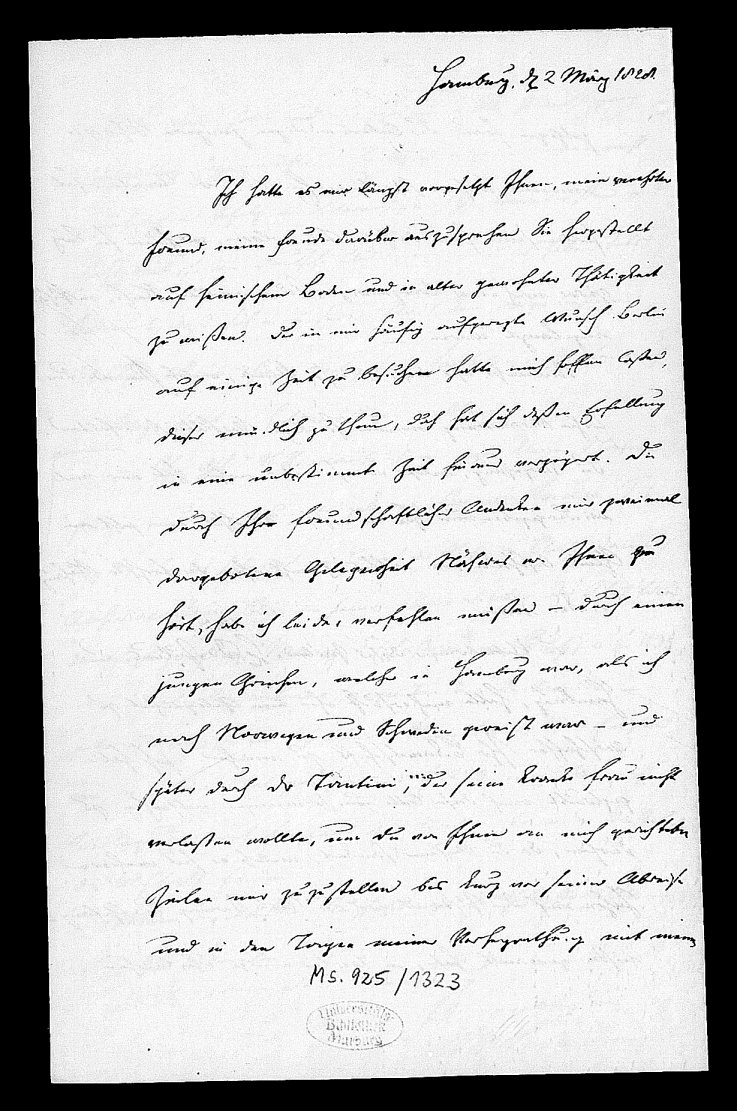 Hamburg, d 2 März 1828.
Ich hatte es mir längst vorgesetzt Ihnen, mein verehrter
Freund, meine Freude darüber auszusprechen Sie hergestellt
auf heimischem Boden und in alter gewohnter Thätigkeit
zu wissen. Der in mir häufig aufgeregte Wunsch Berlin
auf einige Zeit zu besuchen hatte mich hoffen lassen,
dieses mündlich zu thun, doch hat sich dessen Erfüllung
in eine unbestimmte Zeit hinaus verzögert. Die
durch Ihr freundschaftliches Andenken mir zweimal
dargebotene Gelegenheit Näheres von Ihnen zu
hören, habe ich leider verfehlen müssen – durch einen
jungen Griechen, welcher in Hamburg war, als ich
nach Norwegen und Schweden gereist war – und
später durch Dr Tantini, der seine kranke Frau nicht
verlassen wollte, um die von Ihnen an mich gerichteten
Zeilen mir zuzustellen bis kurz vor seiner Abreise
und in den Tagen meiner Verheyrathung mit meiner
Ms. 925/1323
Universitäts
Bibliothek
Marburg